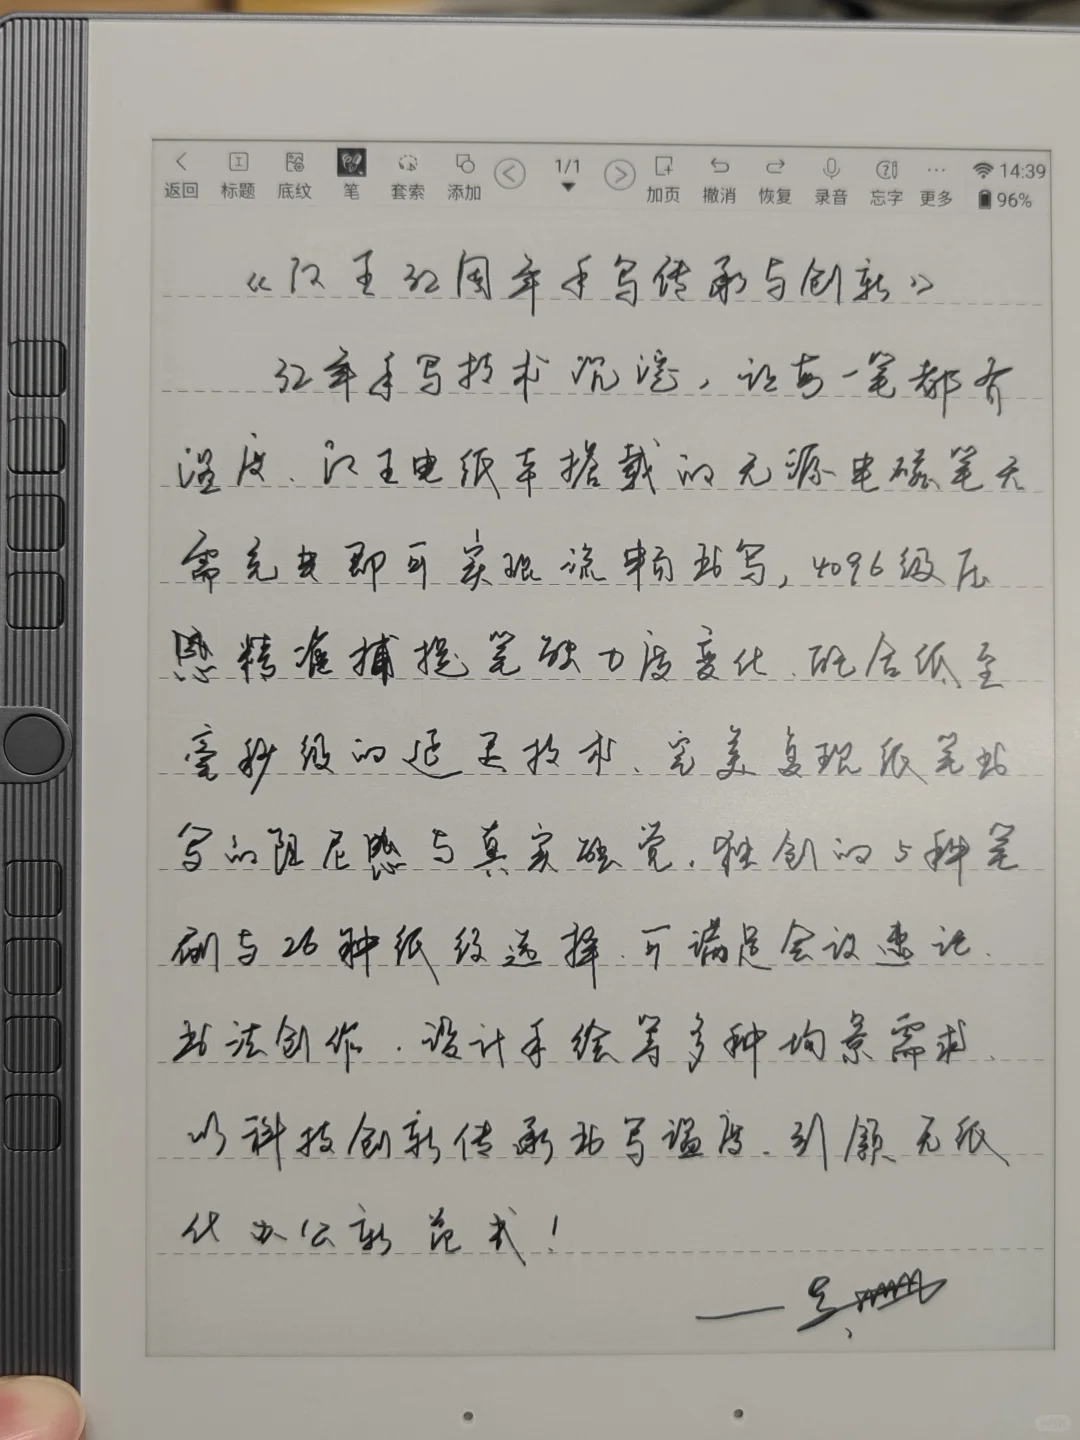 返回 标题 底纹 笔 套索 添加 1/1 加页 撤消 恢复 录音 忘字 更多 14:39 96%
《汉王32周年手写传承与创新》
32年手写技术沉淀，让每一笔都有
温度、汉王电纸本搭载的无源电磁笔无
需充电即可实现流畅书写，4096级压
感精准捕捉笔触力度变化、配合低至
毫秒级的延迟技术、完美复现纸笔书
写的阻尼感与真实触觉，独创的5种笔
刷与26种纸纹选择、可满足会议速记、
书法创作、设计手绘等多种场景需求、
以科技创新传承书写温度、引领无纸
化办公新范式！